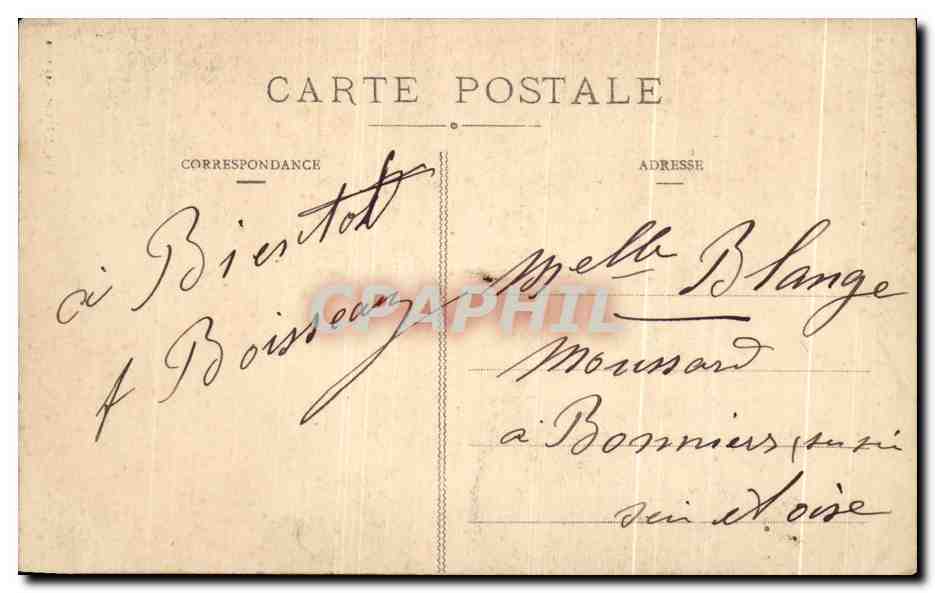 CARTE POSTALE
CORRESPONDANCE
ADRESSE
à Bientot
f Boisseau
Melle Blange
Moussard
à Bonniers, sur
sein et oise
CPAPHIL